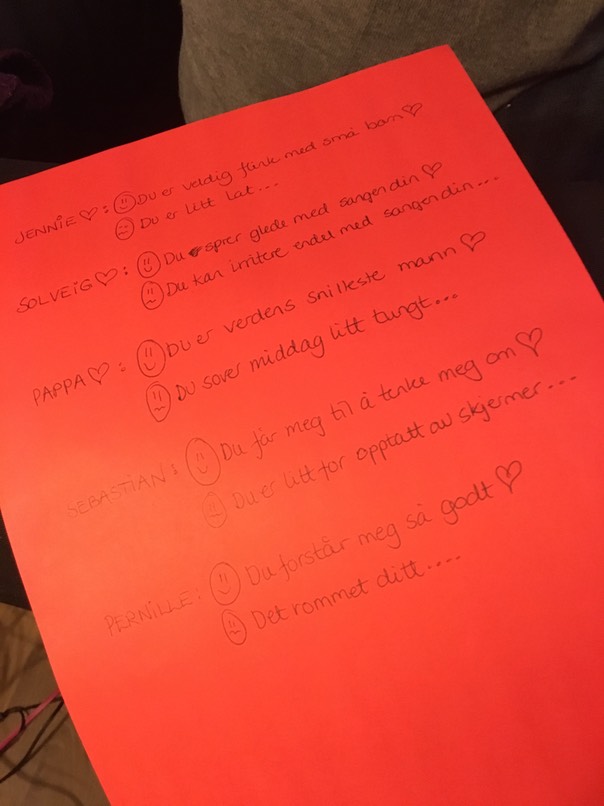 JENNIE♡: Du er veldig flink med små barn♡
Du er litt lat...
SOLVEIG♡: Du sprer glede med sangen din♡
Du kan irritere endel med sangen din...
PAPPA♡: Du er verdens snilleste mann♡
Du sover middag litt tungt...
SEBASTIAN: Du får meg til å tenke meg om♡
Du er litt for opptatt av skjermer...
PERNILLE: Du forstår meg så godt♡
Det rommet ditt....